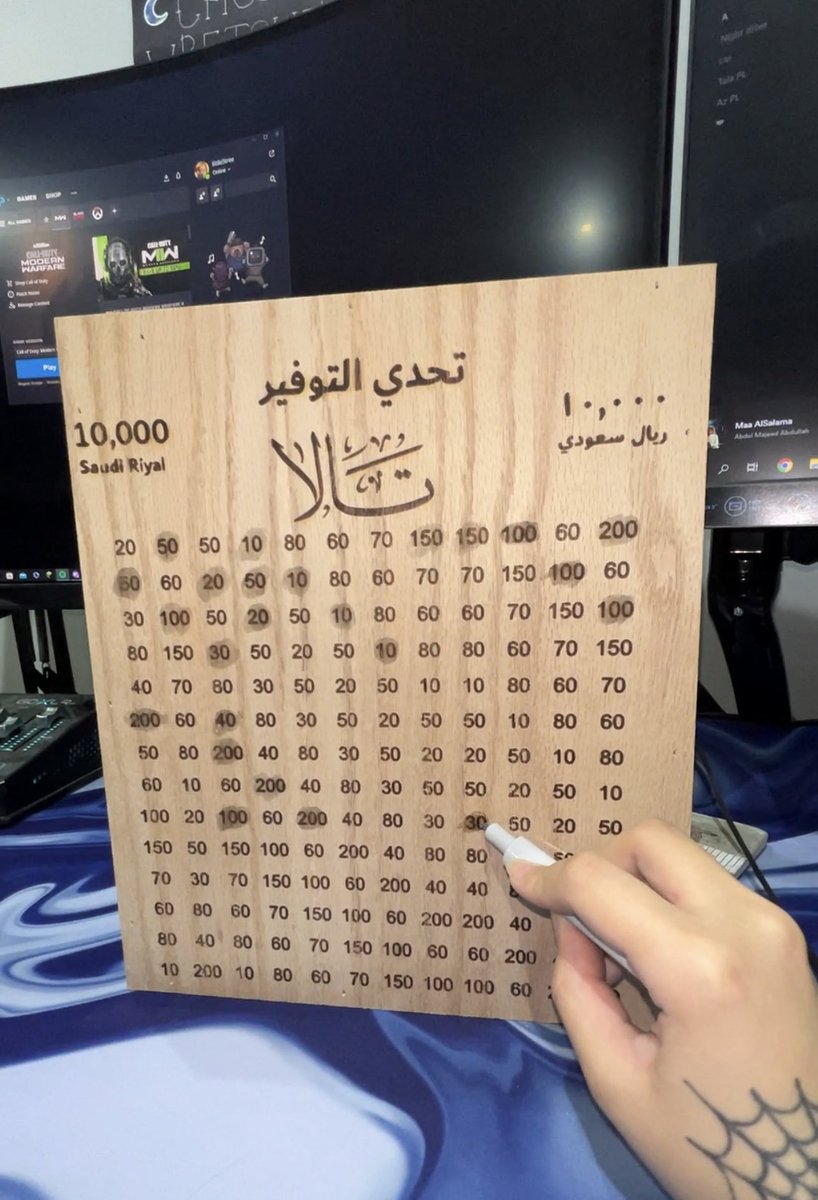 GAMES SHOP
Online
ALL GAMES
CALL OF DUTY
MODERN
WARFARE
CALL OF DUTY
MW
Shop Call of Duty
Patch Notes
Manage Content
Play
Maa AlSalama
Abdul Majeed Abdullah
تحدي التوفير
10,000
Saudi Riyal
١٠,٠٠٠
ريال سعودي
تالا
20 50 50 10 80 60 70 150 150 100 60 200
50 60 20 50 10 80 60 70 70 150 100 60
30 100 50 20 50 10 80 60 60 70 150 100
80 150 30 50 20 50 10 80 80 60 70 150
40 70 80 30 50 20 50 10 10 80 60 70
200 60 40 80 30 50 20 50 50 10 80 60
50 80 200 40 80 30 50 20 20 50 10 80
60 10 60 200 40 80 30 50 50 20 50 10
100 20 100 60 200 40 80 30 30 50 20 50
150 50 150 100 60 200 40 80 80
70 30 70 150 100 60 200 40 40
60 80 60 70 150 100 60 200 200 40
80 40 80 60 70 150 100 60 60 200
10 200 10 80 60 70 150 100 100 60